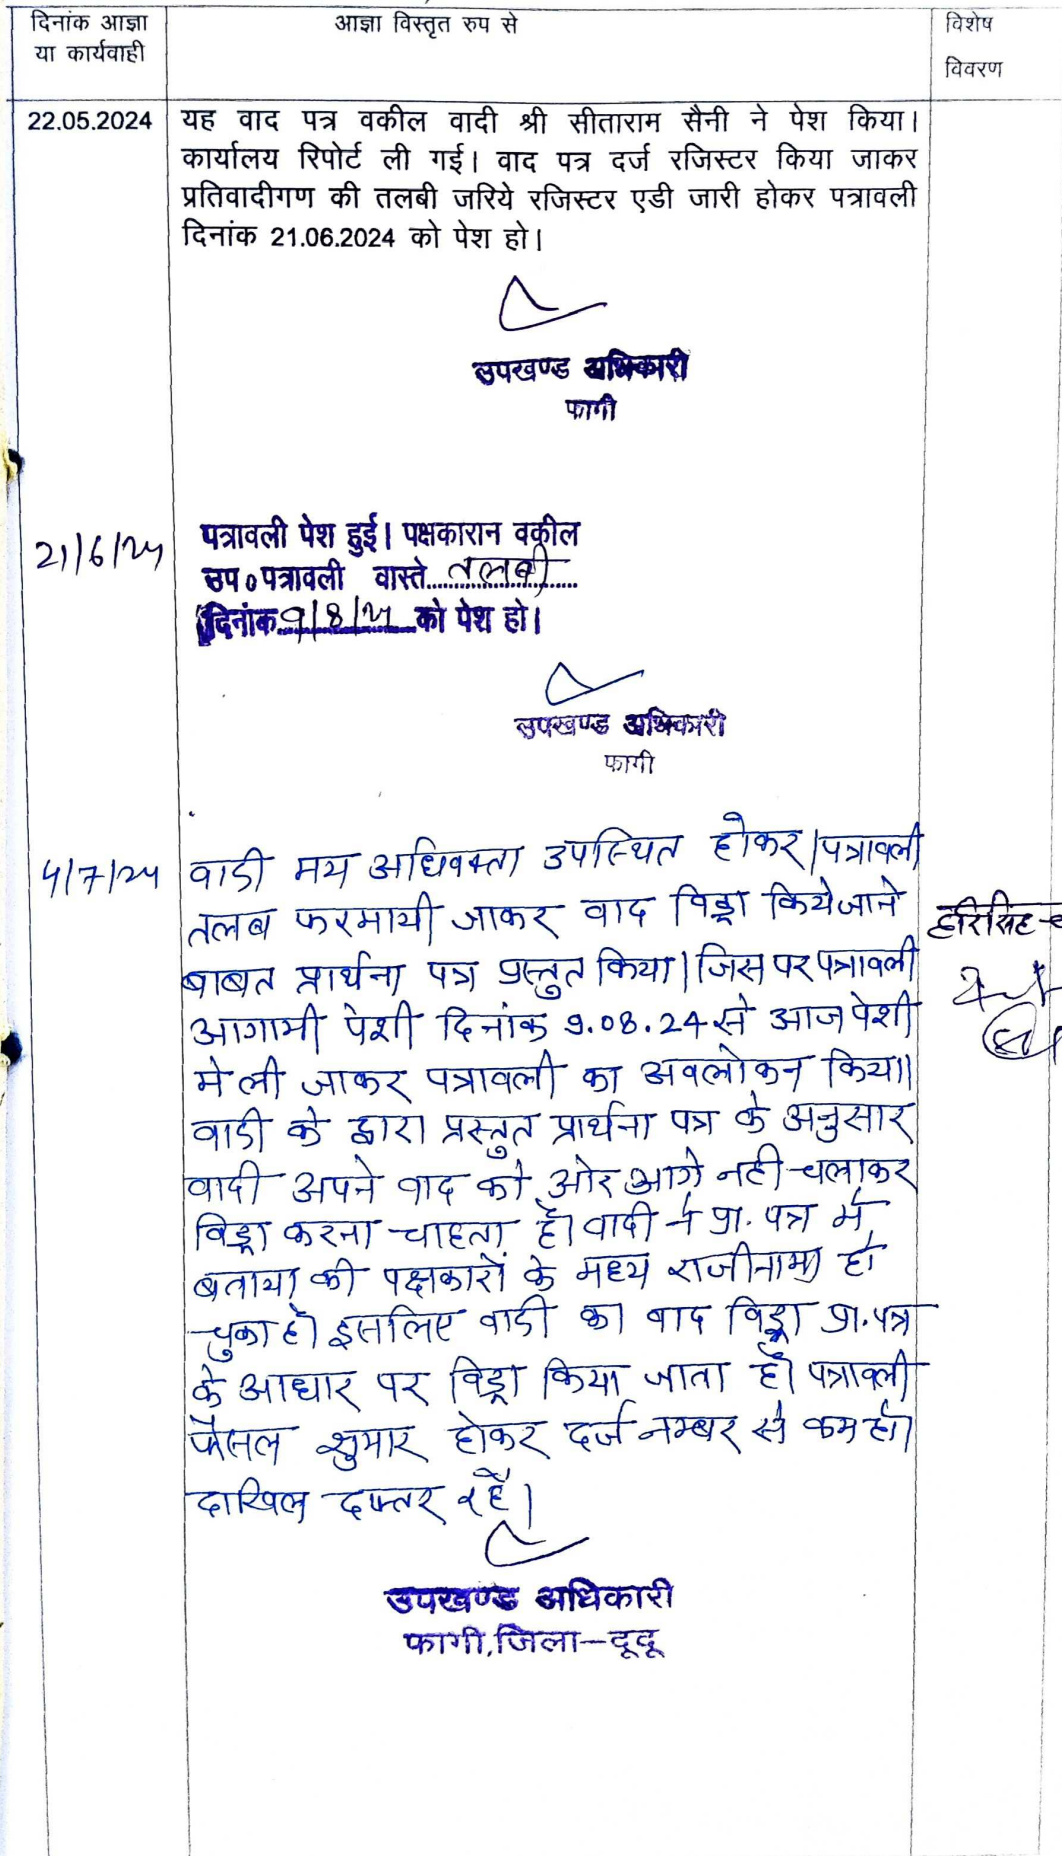 दिनांक आज्ञा
या कार्यवाही
आज्ञा विस्तृत रुप से
विशेष
विवरण
22.05.2024
यह वाद पत्र वकील वादी श्री सीताराम सैनी ने पेश किया।
कार्यालय रिपोर्ट ली गई। वाद पत्र दर्ज रजिस्टर किया जाकर
प्रतिवादीगण की तलबी जरिये रजिस्टर एडी जारी होकर पत्रावली
दिनांक 21.06.2024 को पेश हो।
उपखण्ड अधिकारी
फागी
21/6/24
पत्रावली पेश हुई। पक्षकारान वकील
उप० पत्रावली वास्ते तलबी
दिनांक 9/8/24 को पेश हो।
उपखण्ड अधिकारी
फागी
4/7/24
वादी मय अधिवक्ता उपस्थित होकर। पत्रावली
तलब फरमायी जाकर वाद विड्रा किये जाने
बाबत प्रार्थना पत्र प्रस्तुत किया। जिस पर पत्रावली
आगामी पेशी दिनांक 9.08.24 से आज पेशी
मे ली जाकर पत्रावली का अवलोकन किया।
वादी के द्वारा प्रस्तुत प्रार्थना पत्र के अनुसार
वादी अपने वाद को ओर आगे नही चलाकर
विड्रा करना चाहता है। वादी ने प्रा. पत्र में
बताया की पक्षकारों के मध्य राजीनामा हो
चुका है। इसलिए वादी का वाद विड्रा प्रा. पत्र
के आधार पर विड्रा किया जाता है। पत्रावली
फैसल शुमार होकर दर्ज नम्बर से कम हो।
दाखिल दफ्तर रहें।
हरिसिंह
उपखण्ड अधिकारी
फागी, जिला-दूदू